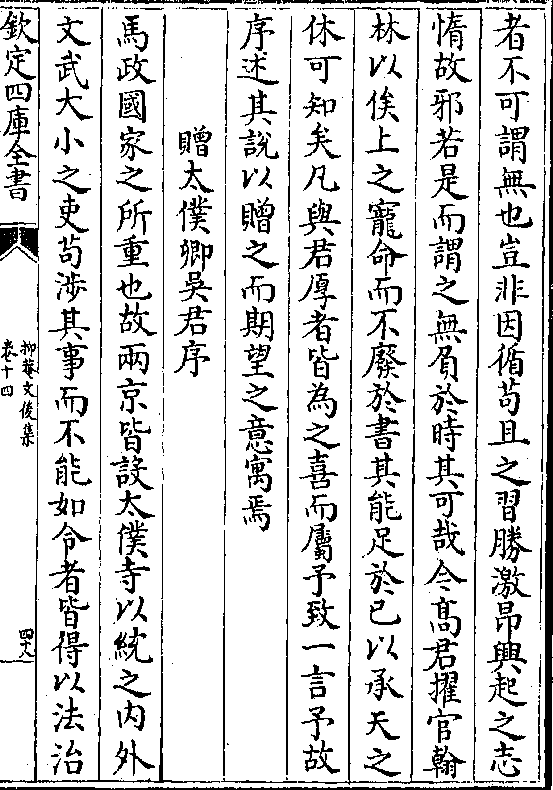 者不可謂無也豈非因循茍且之習勝激昂興起之志
惰故邪若是而謂之無負於時其可哉今髙君擢官翰
林以俟上之寵命而不廢於書其能足於已以承天之
休可知矣凡與君厚者皆為之喜而屬予致一言予故
序述其說以贈之而期望之意寓焉
贈太僕卿吳君序
馬政國家之所重也故兩京皆設太僕寺以統之内外
文武大小之吏茍涉其事而不能如令者皆得以法治
欽定四庫全書
抑菴文後集
卷十四
四十八